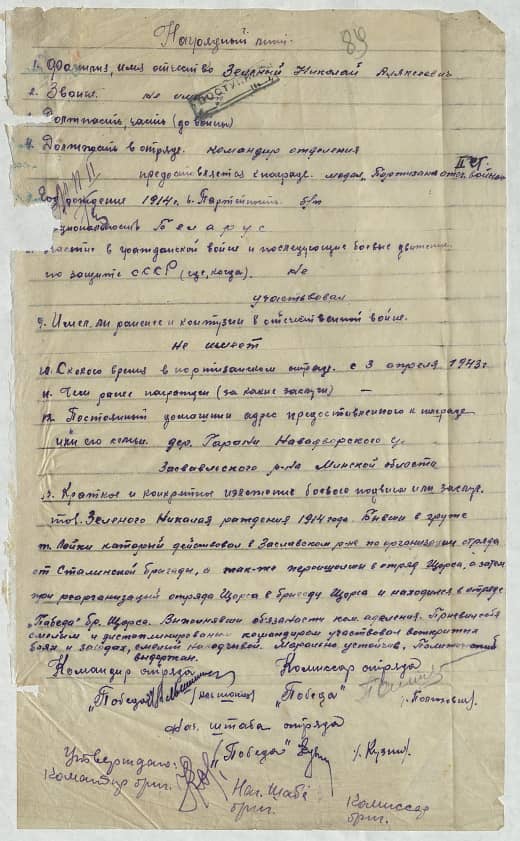 Наградный лист.
89
1. Фамилия, имя отчество Зеленый Николай Алексеевич
2. Звание. не
ПОСТУ
3. Должность, часть (до войны)
4. Должность в отряде. командир отделения
II ст.
предоставляется к награде. медал. Партизана отеч. войны
Год рождение 1914 г. 6. Партейность б/п
Национальность Беларус
Участие в гражданской войне и последующие боевые движения
по защите СССР (где, когда). не
участвовал
9. Имел ли ранение и контузии в отечественной войне.
не имеет
10. Сколько время в партизанском отряде. с 3 апреля 1943 г
11. Чем ранее награжден (за какие заслуги) —
12. Постоянный домашний адрес предоставленного к награде
или его семьи. дер. Гарани Навадворского
Заславльского р-на Минской области
13. Краткое и конкретное изложение боевого подвига или заслуг.
тов. Зеленого Николая рождения 1914 года. Бывши в группе
т. Лойки который действовал в Заславском р-не по организации отряда
от Сталинской бригады, а так-же перешли в отряд Щорса, а затем
при реорганизаций отряда Щорса в бригаду Щорса и находился в отряде
"Победа" бр. Щорса. Выполнявши обязаности ком. отделения. Проявил себя
смелым и дисциплинированным командиром участвовал в открытых
боях и засадах, смелый находчивый. Морально устойчив, Политически
выдержан.
Командир отряда Комиссар отряда
"Победа" "Победа"
Нач. штаба отряда
"Победа" /Кузин/.
Утверждаю:
Командир бриг. Нач. Штаба Комиссар
бриг. бриг.